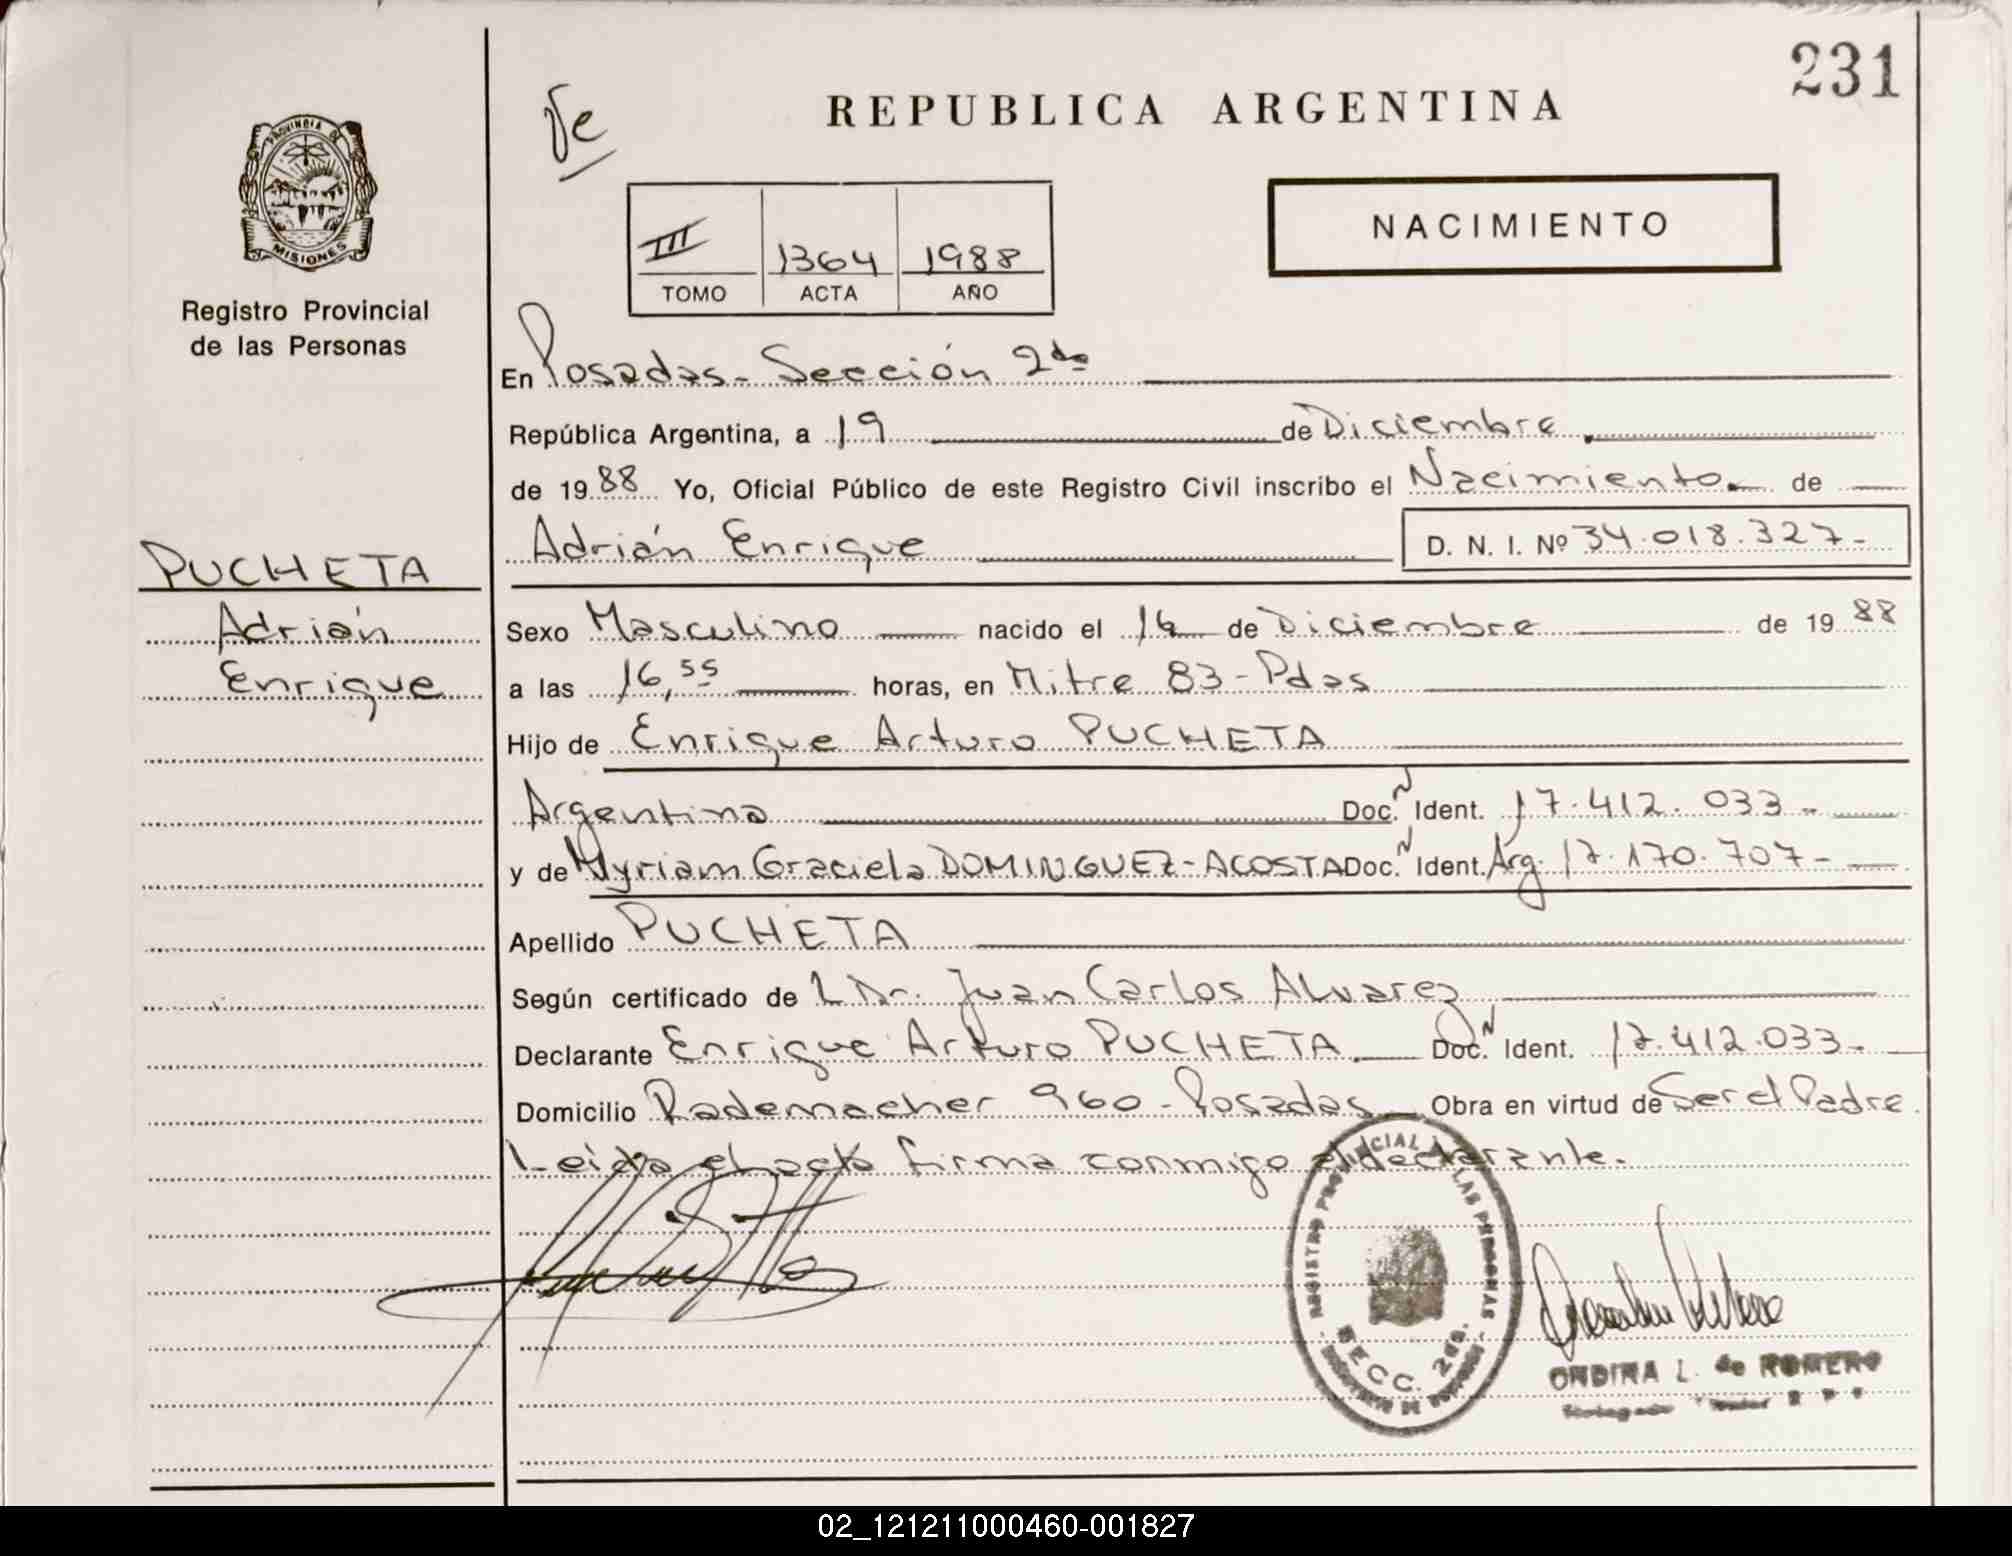 231
Je
REPUBLICA ARGENTINA
PROVINCIA DE
MISIONES
Registro Provincial
de las Personas
III 1364 1988
TOMO ACTA AÑO
NACIMIENTO
En Posadas - Sección 2da
República Argentina, a 19 de Diciembre
de 1988 Yo, Oficial Público de este Registro Civil inscribo el Nacimiento de
Adrián Enrique D. N. I. Nº 34.018.327-
PUCHETA
Adrián
Enrique
Sexo Masculino nacido el de Diciembre de 1988
a las 16,55 horas, en Mitre 83 - Pdas
Hijo de Enrique Arturo PUCHETA
Argentino Doc. N Ident. 17.412.033-
y de Myriam Graciela DOMINGUEZ-ACOSTA Doc. N Ident. Arg. 17.170.707-
Apellido PUCHETA
Según certificado de L Dr. Juan Carlos Alvarez
Declarante Enrique Arturo PUCHETA Doc. N Ident. 17.412.033-
Domicilio Rademacher 960 - Posadas Obra en virtud de Ser el Padre
Leida el acta firma conmigo el declarante.
REGISTRO PROVINCIAL DE LAS PERSONAS
SECC. 2da.
ONDINA L. de ROMERO
02_121211000460-001827